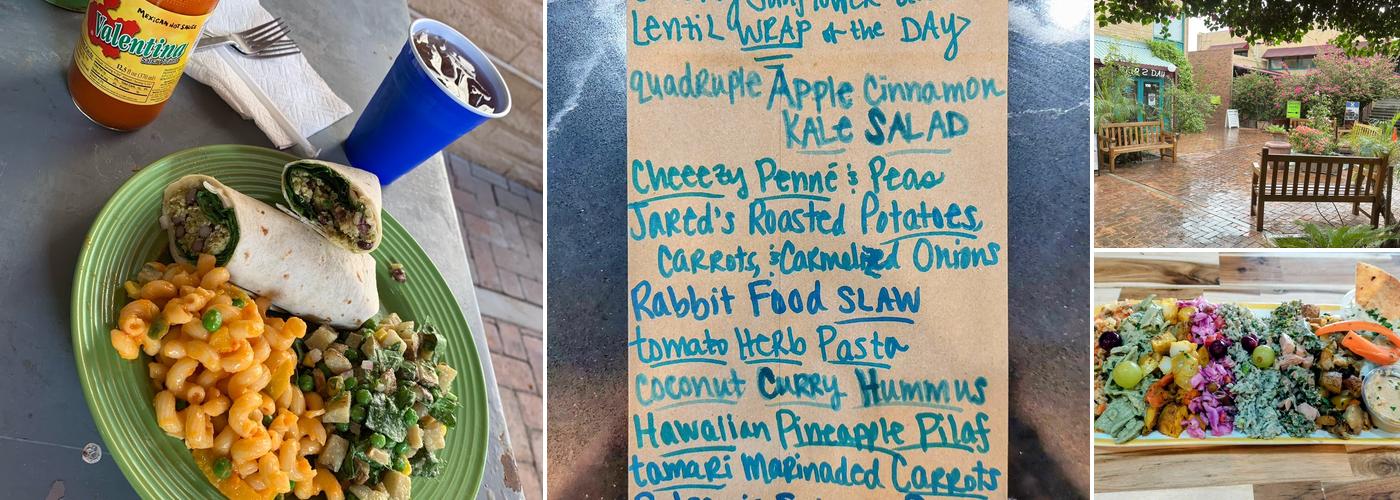 MEXICAN HOT SAUCE
Valentina
SALSA PICANTE
12.5 fl oz (370 ml)
Lentil WRAP of the DAY
quadruple Apple Cinnamon
KALE SALAD
Cheeezy Penné & Peas
Jared's Roasted Potatoes,
Carrots, & Carmelized Onions
Rabbit Food SLAW
tomato Herb Pasta
coconut Curry Hummus
Hawaiian Pineapple Pilaf
tamari Marinaded Carrots